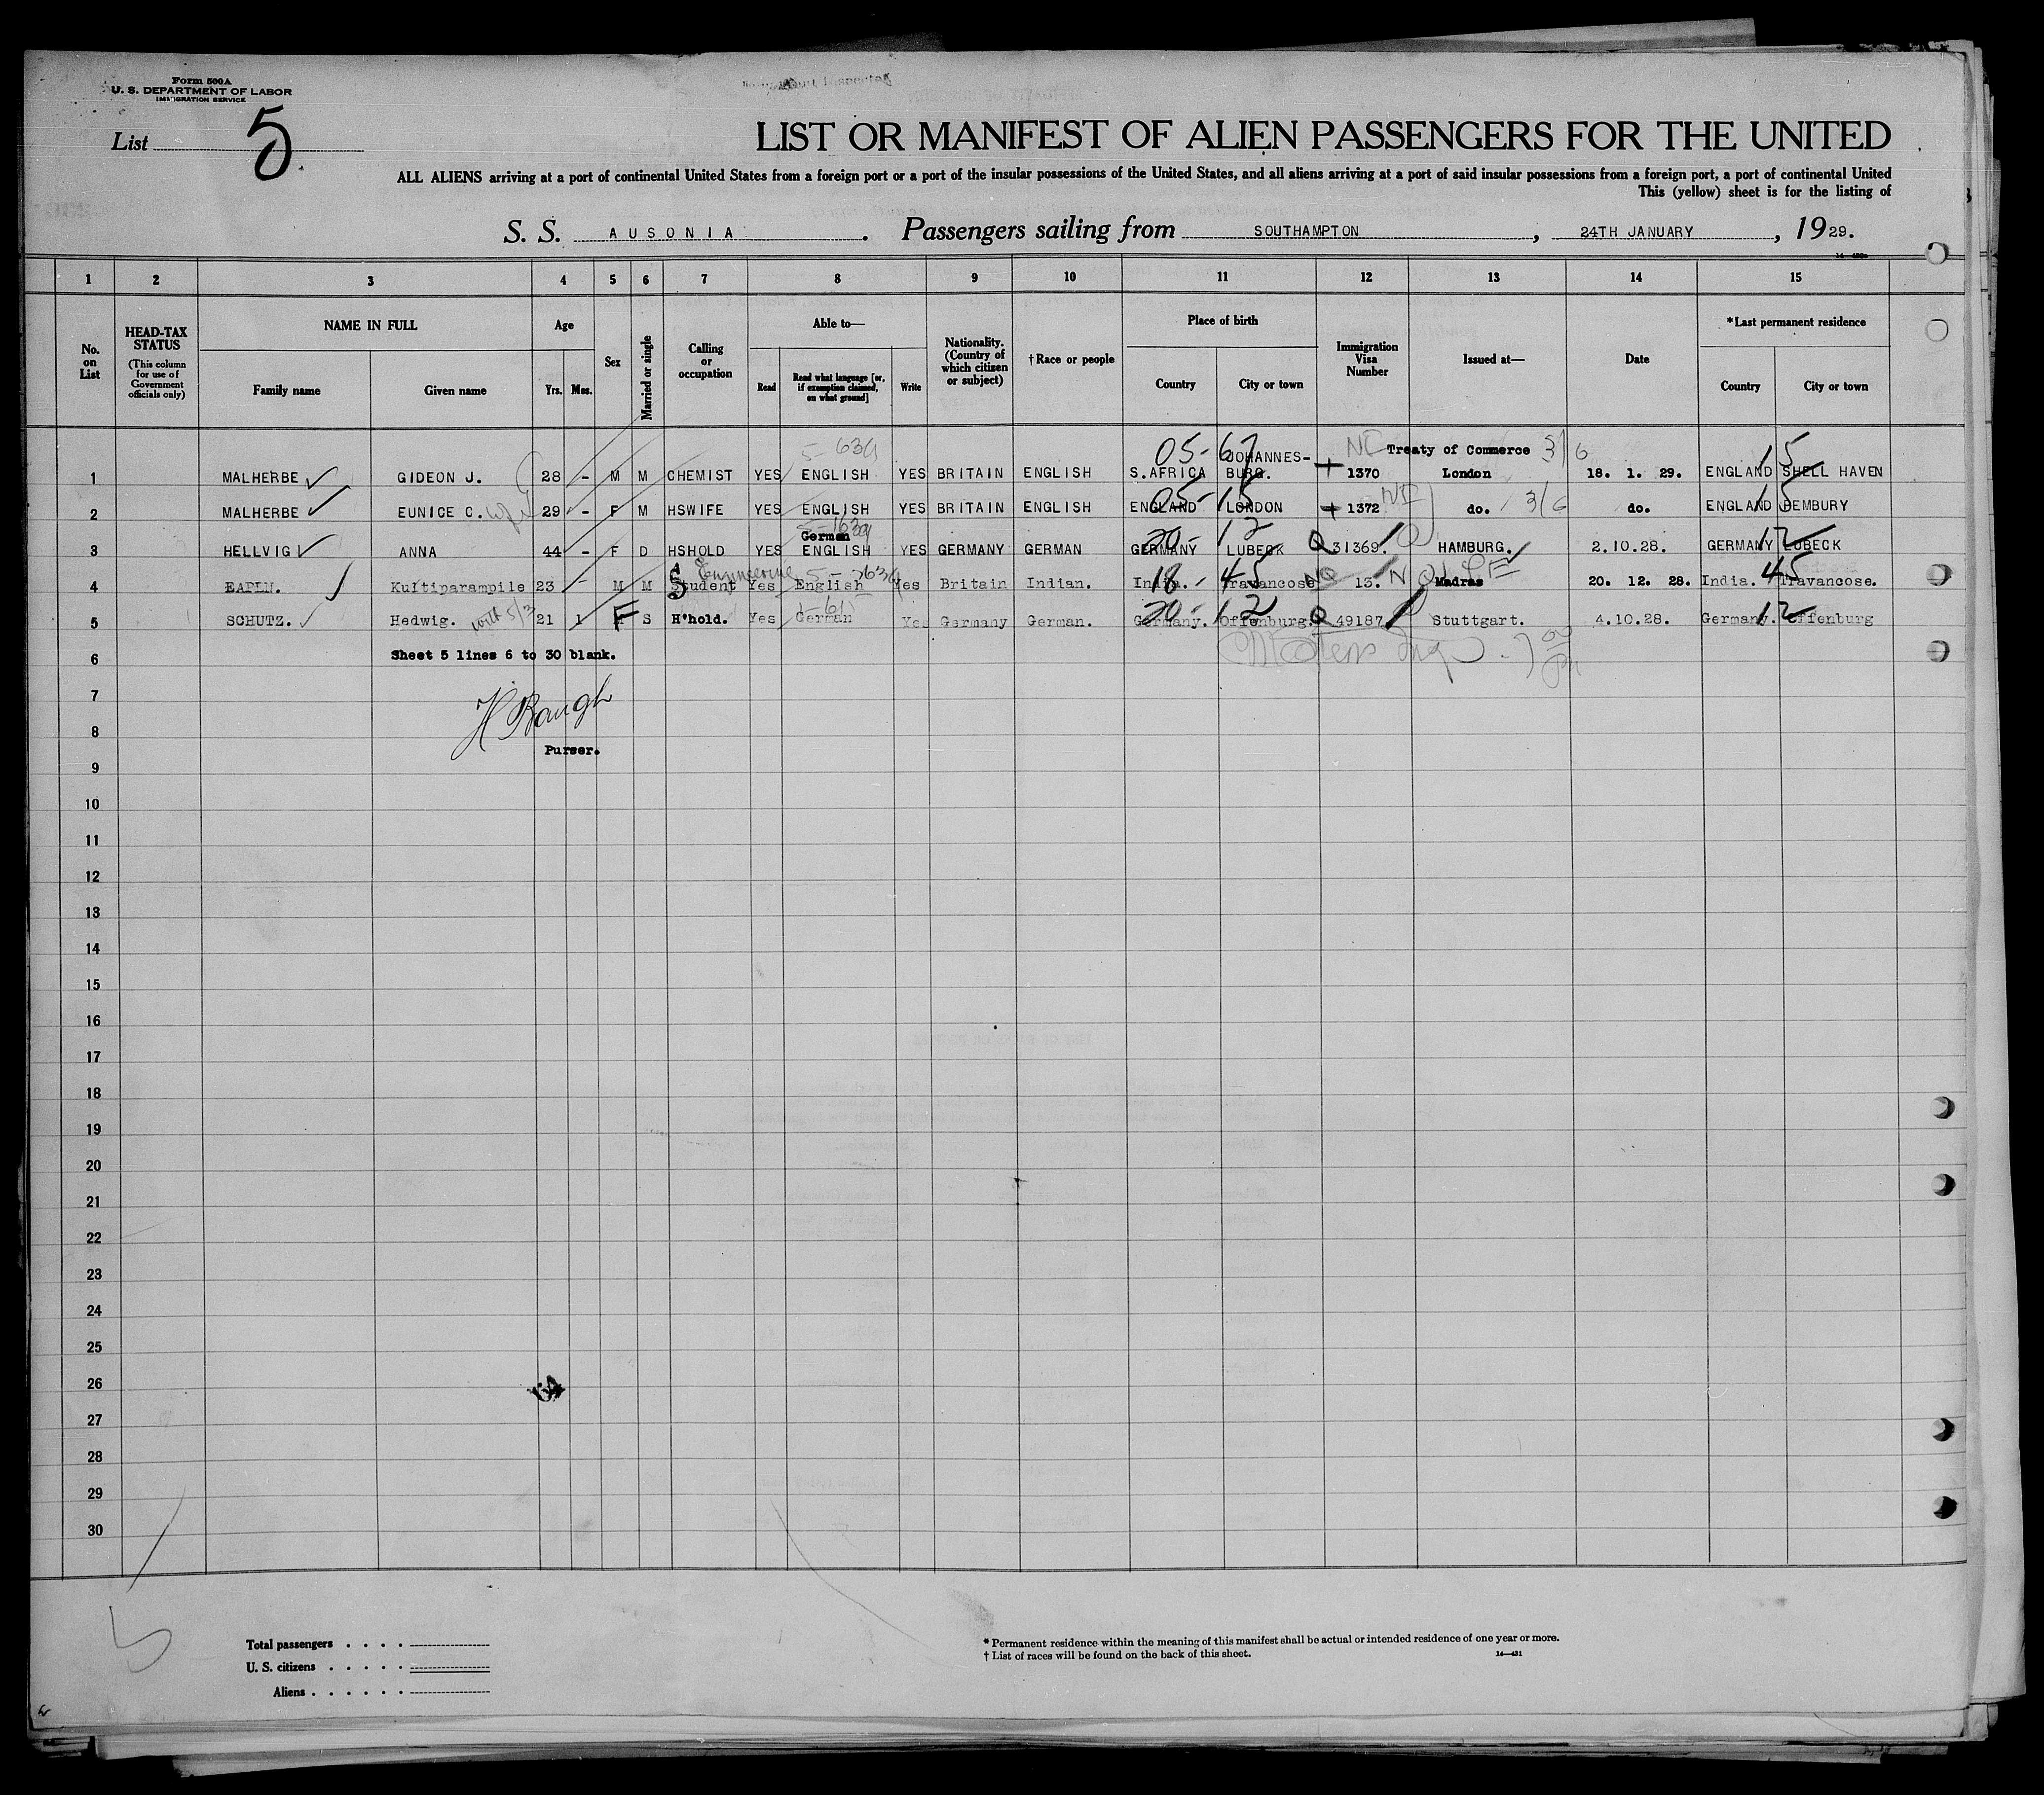 Form 500A
U. S. DEPARTMENT OF LABOR
IMMIGRATION SERVICE
List 5
LIST OR MANIFEST OF ALIEN PASSENGERS FOR THE UNITED
ALL ALIENS arriving at a port of continental United States from a foreign port or a port of the insular possessions of the United States, and all aliens arriving at a port of said insular possessions from a foreign port, a port of continental United
This (yellow) sheet is for the listing of
S. S. AUSONIA. Passengers sailing from SOUTHAMPTON, 24TH JANUARY, 1929.
1 2 3 4 5 6 7 8 9 10 11 12 13 14 15
No. on List
HEAD-TAX STATUS
(This column for use of Government officials only)
NAME IN FULL
Family name Given name
Age
Yrs. Mos.
Sex
Married or single
Calling or occupation
Able to—
Read
Read what language [or, if exemption claimed, on what ground]
Write
Nationality. (Country of which citizen or subject)
†Race or people
Place of birth
Country City or town
Immigration Visa Number
Issued at—
Date
*Last permanent residence
Country City or town
05-67 NC Treaty of Commerce 3/6 15
1 MALHERBE GIDEON J. 28 - M M CHEMIST YES ENGLISH YES BRITAIN ENGLISH S.AFRICA JOHANNES-BURG. 1370 London 18. 1. 29. ENGLAND SHELL HAVEN
2 MALHERBE EUNICE C. 29 - F M HSWIFE YES ENGLISH YES BRITAIN ENGLISH ENGLAND LONDON 1372 do. 3/6 do. ENGLAND PEMBURY
3 HELLVIG ANNA 44 - F D HSHOLD YES German ENGLISH YES GERMANY GERMAN GERMANY LUBECK Q 31369. HAMBURG. 2.10.28. GERMANY LUBECK
4 EAPLN. Kultiparampile 23 - M M Engineering Student Yes English Yes Britain Inlian. India. Travancose 13. Madras 20. 12. 28. India. Travancose.
5 SCHUTZ. Hedwig. 21 1 F S H'hold. Yes German Yes Germany German. Germany. Offenburg. Q 49187 Stuttgart. 4.10.28. Germany. Offenburg
6 Sheet 5 lines 6 to 30 blank.
7
H Baugh
8
Purser.
9
10
11
12
13
14
15
16
17
18
19
20
21
22
23
24
25
26
27
28
29
30
Total passengers . . . .
U. S. citizens . . . . .
Aliens . . . . . .
* Permanent residence within the meaning of this manifest shall be actual or intended residence of one year or more.
† List of races will be found on the back of this sheet. 14—431